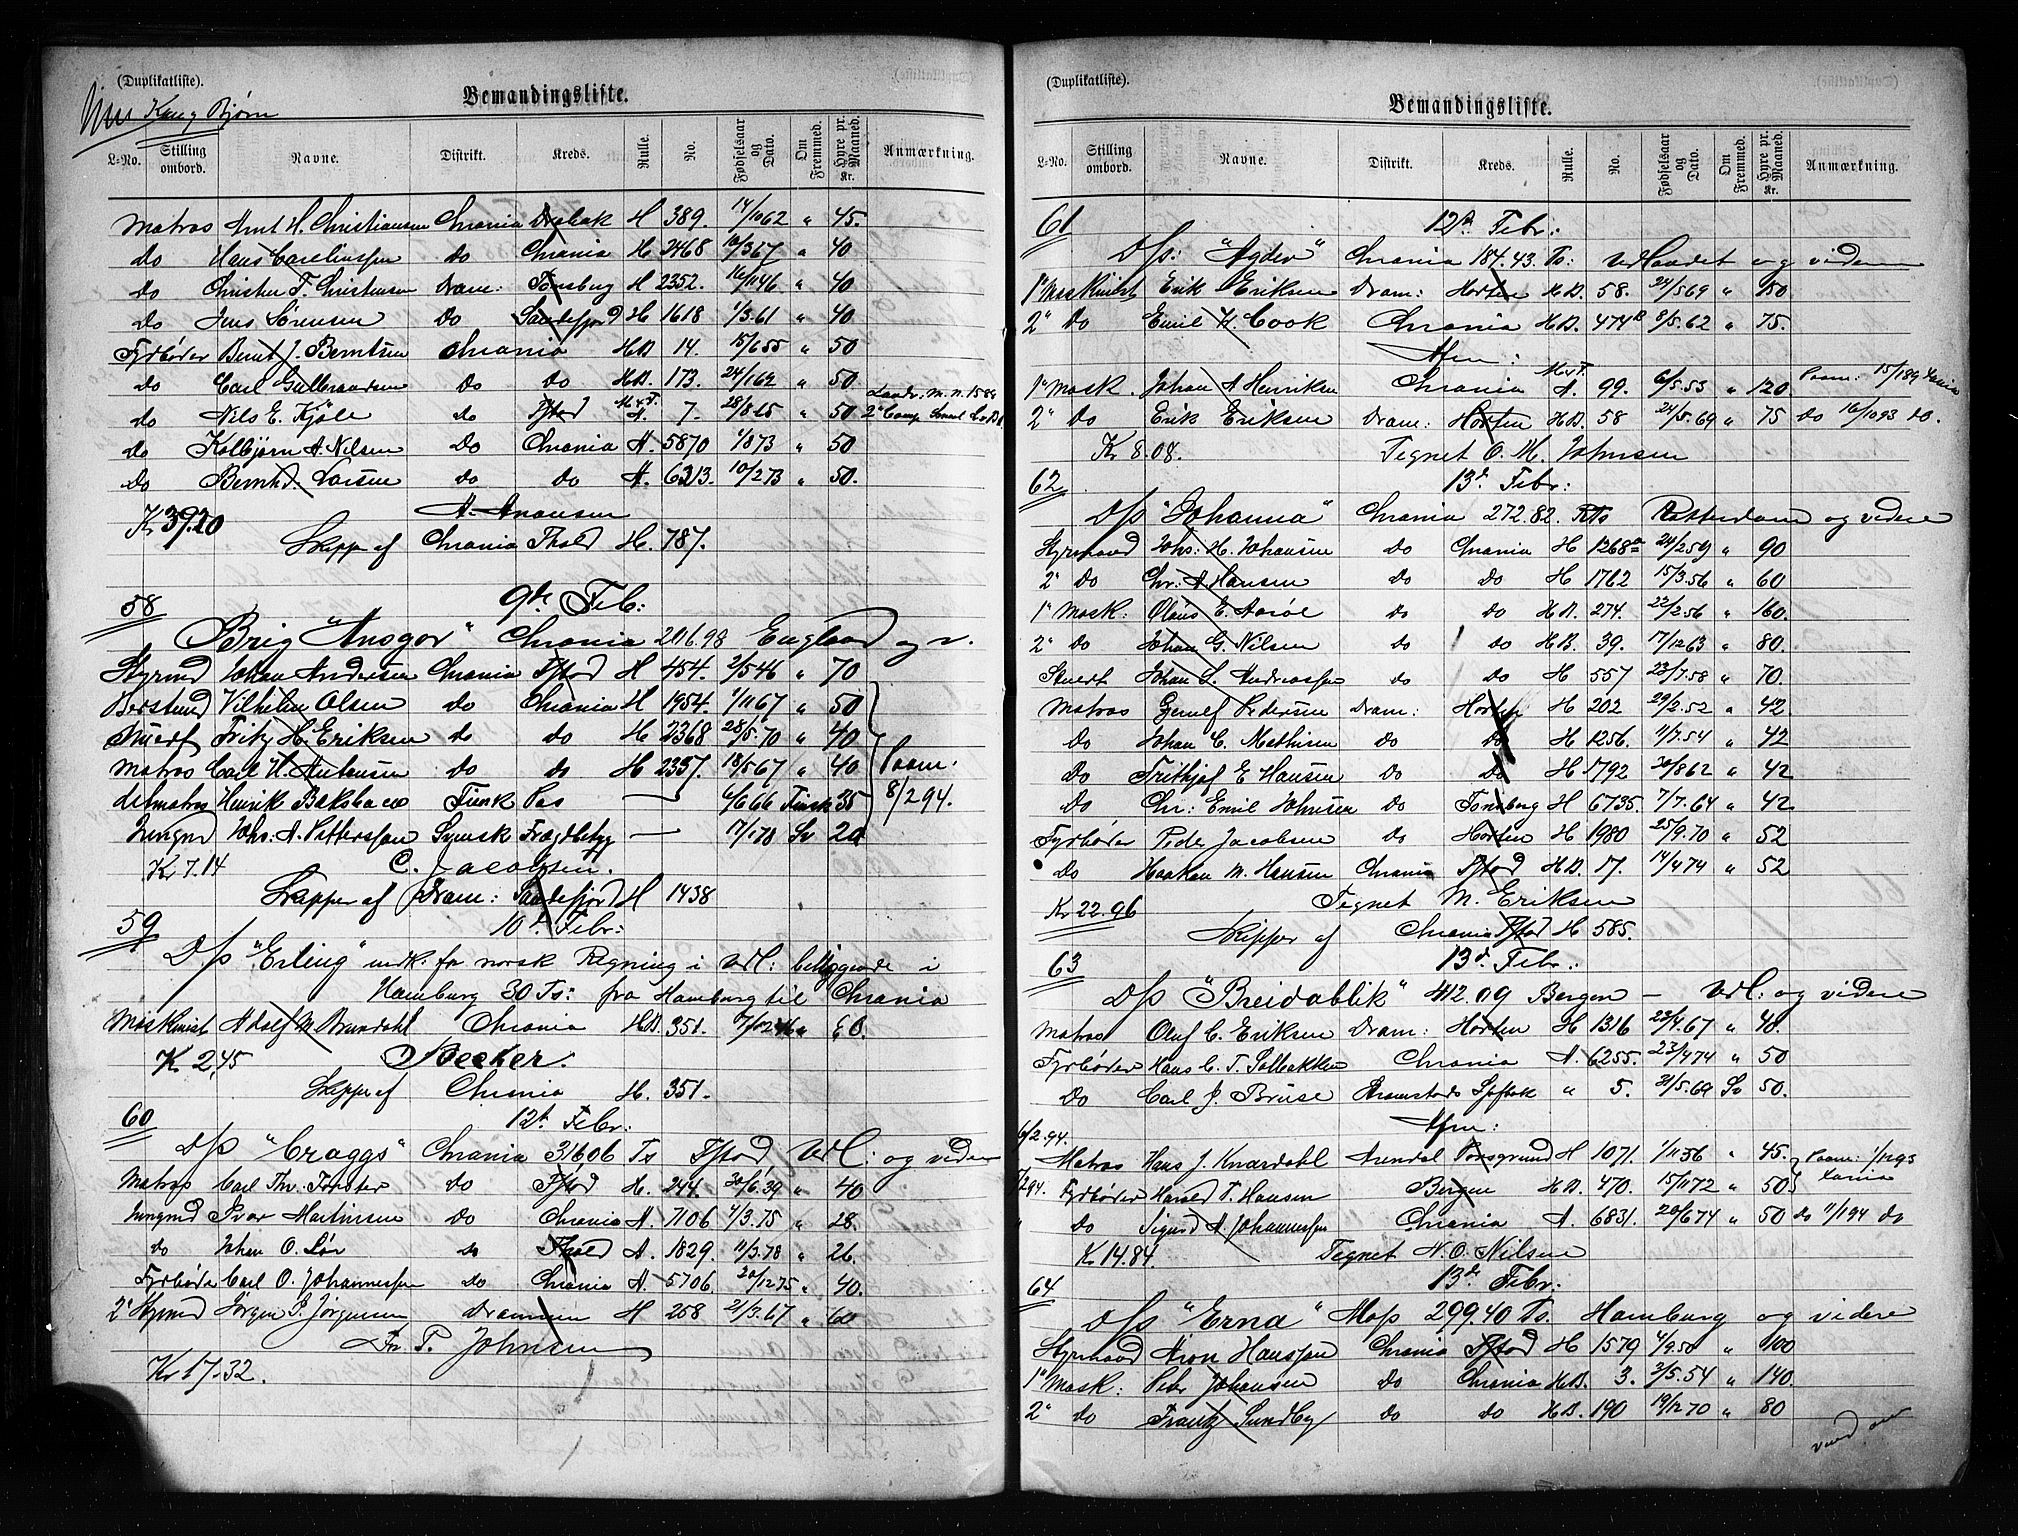 (Duplikatliste).
Bemandingsliste.
Kong Bjørn
L-No. Stilling ombord. Navne. Distrikt. Kreds. Rulle. No. Fødselsaar og Dato. Om Fremmed. Hyre pr. Maaned. Kr. Anmærkning.
Matros Arnt H. Christiansen Chrania Drøbak H 389. 14/10 62 " 45.
do Hans Carelinssen do Chrania H 2468 10/3 67 " 40
do Christen F. Christensen Dram: Tønsberg H 2352. 16/11 46 " 40
do Jens Sørensen Do Sandefjord H 1618 1/3.61 " 40
Fyrbøder Bernt J. Berntsen Chrania H.B 14. 15/6 55 " 50
do Carl Gulbrandsen Do Do H.B. 173. 24/1 62 " 50.
do Nils E. Kjøle do Fstad M&T. A. 7. 28/8 65 " 50
do Kolbjørn A. Nilsen Do Chrania A. 5870 1/8 73 " 50
do Bernh. Larsen do do A. 6313. 10/2 73 " 50.
Kr 39.20 A. Aronsen
Skipper af Chrania Fhald H. 787.
58 9de Feb:
Brig "Ansgar" Chrania 206.98 England og v.
Styrmd Johan Andersen Chrania Fstad H 454. 2/5 46 " 70
Bestmd Vilhelm Olsen do Chrania H 1954. 1/11 67 " 50
Stuert Fritz H. Eriksen do do H 2368 28/5.70 " 40
Matros Carl H. Antonsen do do H 2357. 18/5 67 " 40 Paam:
Letmatros Henrik Baksbacce Finsk Pas — 6/6 66 Finsk 35 8/2 94.
Jungmd Johs. A. Pettersson Svensk Fragdbetyg — 17/1 78 Sv 20
Kr 7.14 C. Jacobsen.
Skipper af Dram: Sandefjord H 1438
59 10de Febr:
D/S "Erling" indk. for norsk Regning i Udl: beliggende i
Hamburg 30 Ts: fra Hamburg til Chrania
Maskinist Adolf M. Brundahl Chrania H.B. 351. 7/12 46 " 60.
Kr 2,45 Becker.
Skipper af Chrania H. 351.
60 12te Febr:
D/S "Craggs" Chrania 316.06 Ts Fstad Udl: og videre
Matros Carl Th. Forster do Fstad H. 244. 30/6.39 " 40
Jungmd Ivar Martinsen Do Chrania A. 7106 4/3.75 " 28.
do Johan O. Lør do Fhald A. 1829. 11/3.78 " 26.
Fyrbøder Carl O. Johannessen do Chrania A. 5706 20/12 75 " 40.
2' Styrmd Jørgen P. Jørgensen Drammen H 258 21/3.67 " 60
Fr. P. Johnsen
Kr 17.32.
(Duplikatliste).
Bemandingsliste.
L-No. Stilling ombord. Navne. Distrikt. Kreds. Rulle. No. Fødselsaar og Dato. Om Fremmed. Hyre pr. Maaned. Kr. Anmærkning.
61 12te Febr:
D/S: "Agder" Chrania 184.43. Ts: Udlandet og videre
1' Maskinist Erik Eriksen Dram: Horten H.B. 58. 24/5 69 " 150
2' Do Emil H. Cook Chrania H.B. 474 B 8/5.62 " 75.
Afm:
1' Mask. Johan A Henriksen Chrania M&T. A. 99. 6/5.53 " 120 Paam: 15/1 89
2' Do Erik Eriksen Dram: Horten H.B. 58 24/5.69 " 75 Do 16/10 93 do.
Kr 8.08. Tegnet O. M. Johnsen
62 13de Febr:
D/S "Johanna" Chrania 272.82. RTs Rotterdam og videre
Styrmand Johs: H. Johansen do Chrania H 1268 24/2 59 " 90
2' Do Chr: A Hansen do Do H 1762 15/3.56 " 60
1' Mask: Olaus E. Aarøe do do H.B. 274. 22/2.56 " 160.
2' Do Johan G. Nilsen do do H.B. 39. 17/12 63 " 80.
Stuert Johan L. Andreassen do do H 557 23/7.58 " 70.
Matros Gjemlf Pedersen Dram: Horten H 202 29/2.52 " 42
Do Johan C. Mathisen do do H 1256. 11/7.54 " 42
Do Frithjof E Hansen Do do H 1792 30/8 62 " 42
Do Chr: Emil Johnsen Do Tønsberg H 6735. 7/7.64 " 42
Fyrbøder Peder Jacobsen do Horten H 1980 25/9.70 " 52
Do Haakon M. Hansen Chrania Fstad H.B. 17. 14/4 74 " 52
Kr 22.96 Tegnet M. Eriksen
Skipper af Chrania Fstad H 585.
63 13de Febr:
D/S "Breidablik" 412.09 Bergen — Udl: og videre
Matros Oluf C. Eriksen Dram: Horten H 1316 23/4.67 " 40.
Fyrbøder Hans C. T. Solbakken Chrania A. 6255. 23/4 74 " 50
Do Carl J. Bruse Kramstads Sjøfbok " 5. 31/5.69 Sv 50.
Afm:
6/2.94. Matros Hans J. Knardahl Arendal Porsgrund H 1071. 1/11 56 " 45. Paam: 1/12 93
7/2 94. Fyrbøder Harald T. Hansen Bergen H.B. 470. 15/11 72 " 50
" do Sigurd A. Johannessen Chrania A. 6831. 20/6 74 " 50 do 11/1 94 do
Kr 14.84. Tegnet N. O. Nilsen
64 13de Febr:
D/S "Erna" Moss 299.40 Ts. Hamburg og videre
Styrmand Aron Hanssen Chrania Fstad H 1579 4/9.50 " 100
1' Mask: Peter Johansen Do Chrania H.B. 3. 3/5.54 " 140.
2' do Frantz Sundby do do H.B. 190 19/12 70 " 80
vend om